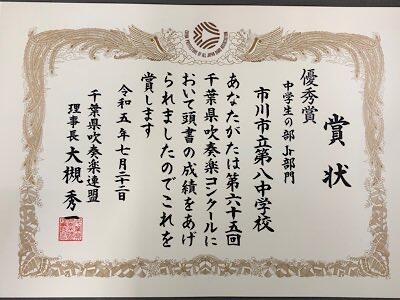 賞状
優秀賞
中学生の部 Jr部門
市川市立第八中学校
あなたがたは第六十五回
千葉県吹奏楽コンクールに
おいて頭書の成績をあげ
られましたのでこれを
賞します
令和五年七月二十二日
千葉県吹奏楽連盟
理事長 大槻秀一